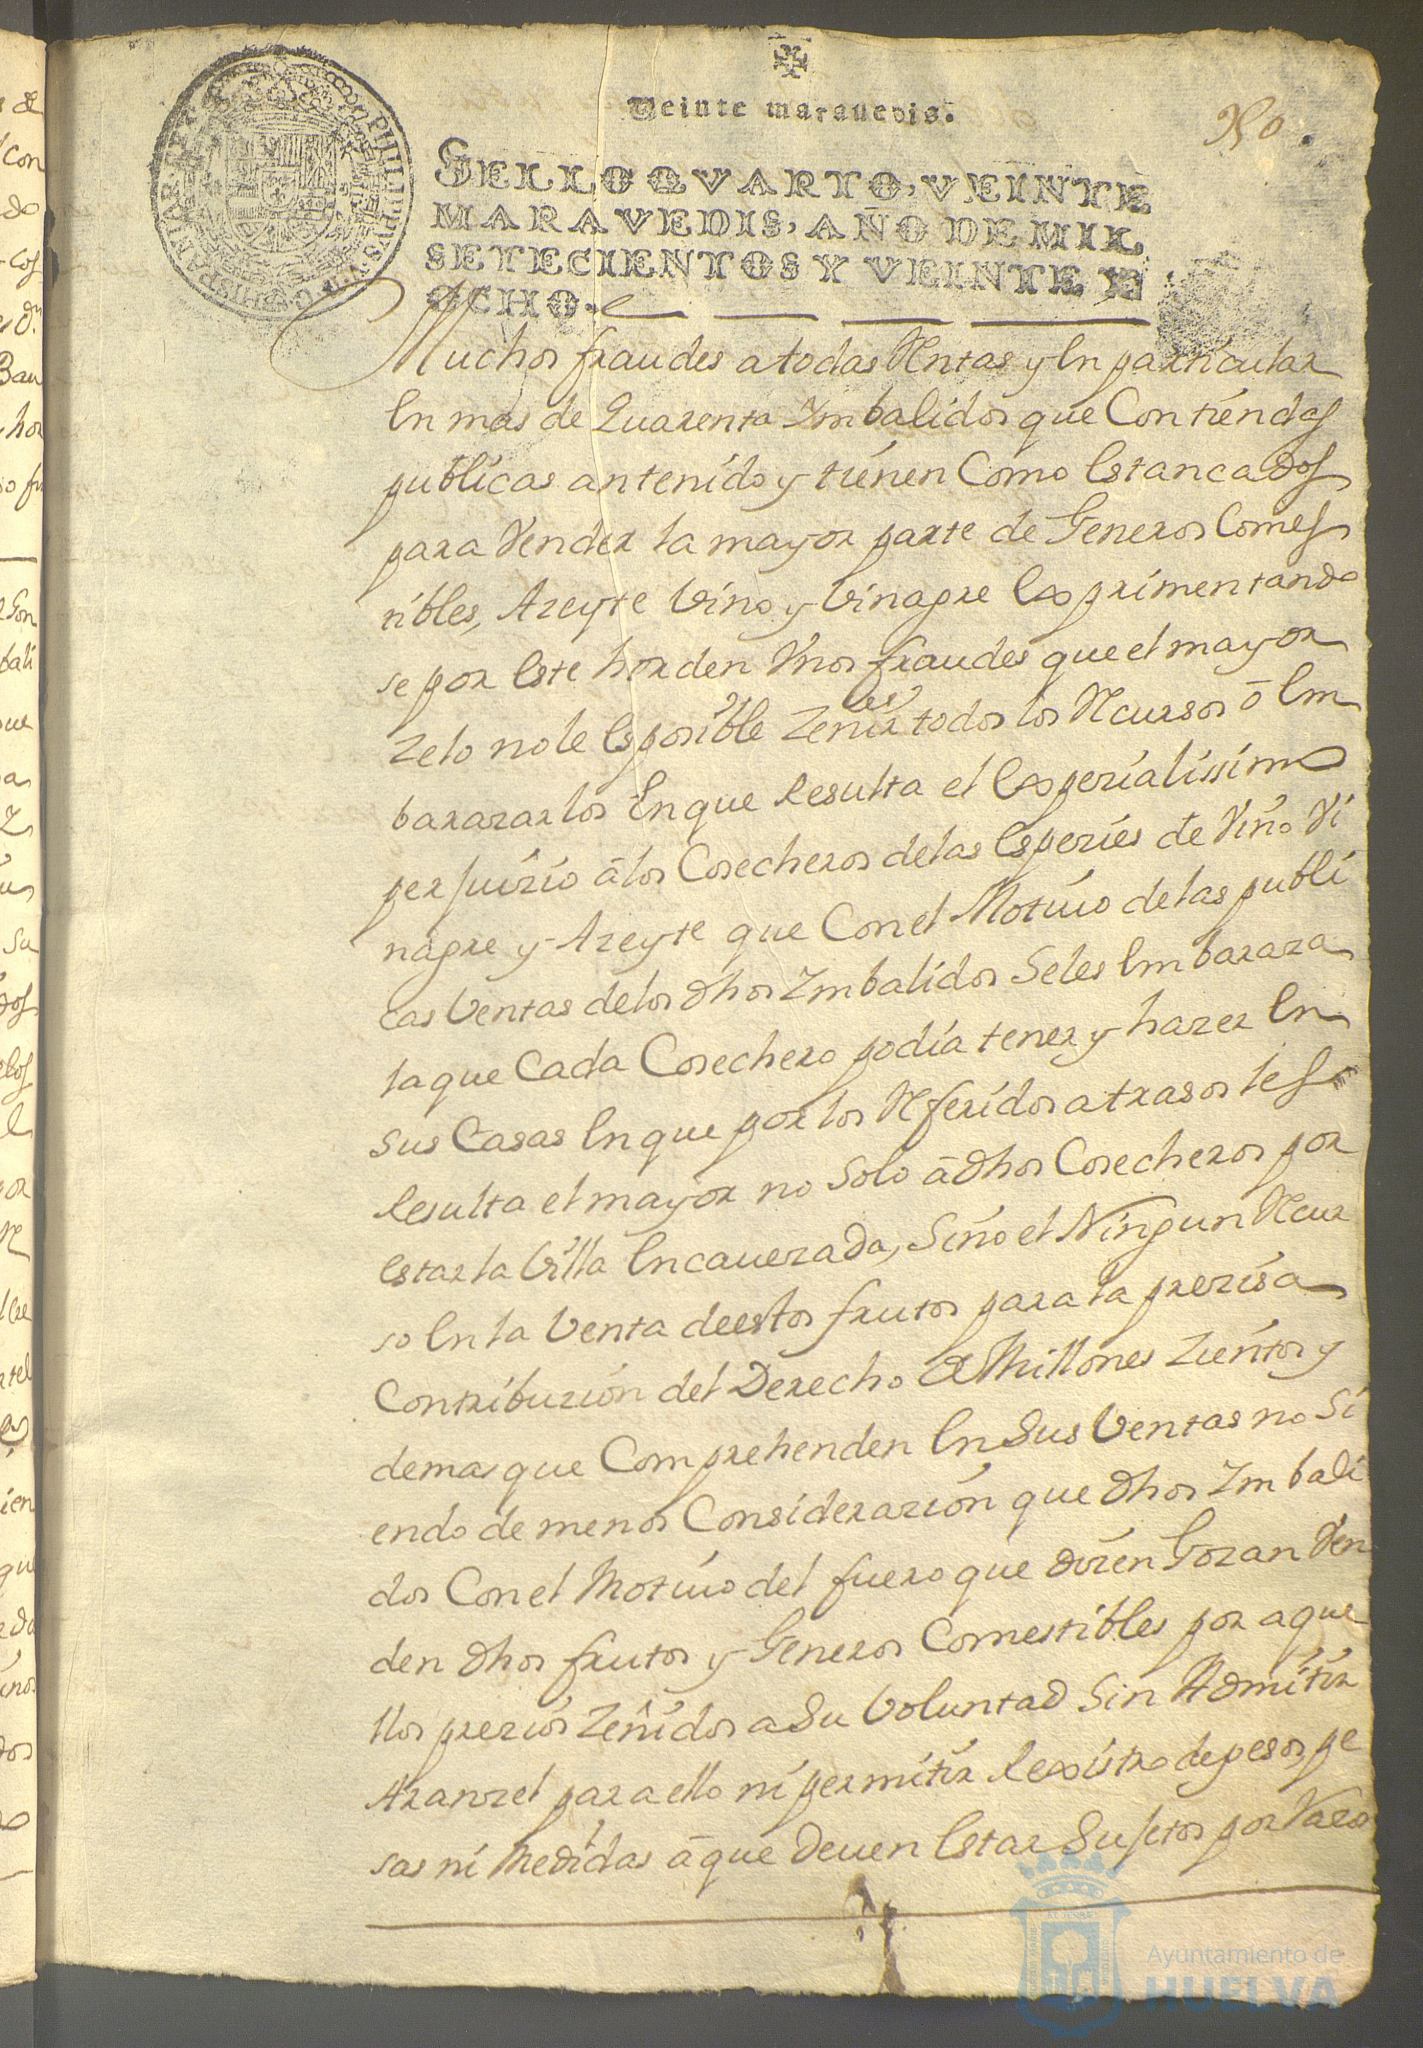 Veinte marauedis.
350
SELLO QVARTO, VEINTE
MARAVEDIS, AÑO DE MIL
SETECIENTOS Y VEINTE Y
OCHO.
PHILIPPUS V D G HISPANIAR REX
Muchos fraudes a todas Rentas y En particular
En mas de Quarenta Ymbalidos que Con tiendas
publicas an tenido y tienen Como Estancados
para Vender la mayor parte de Generos Comes
tibles, Azeyte Vino y Vinagre Experimentando
se por Este horden Vnos fraudes que el mayor
Zelo no le Es posible Zeñir todos los Recursos ô Em
barazarlos En que Resulta el Expezialissimo
perjuizio â los Cosecheros de las Espezies de Vino Vi
nagre y Azeyte que Con el Motiuo de las publi
cas Ventas de los dhos Ymbalidos Se les Embaraza
la que Cada Cosechero podia tener y hazer En
sus Casas En que por los Referidos atrasos les
Resulta el mayor no Solo â dhos Cosecheros por
estar la Villa Encauezada, Sino el Ningun Recur
so En la Venta de estos frutos para la preziza
Contribuzion del Derecho de Millones Zientos y
demas que Comprehenden En Sus Ventas no Si
endo de menos Considerazion que dhos Ymbali
dos Con el Motiuo del fuero que dizen Gozan Ven
den dhos frutos y Generos Comestibles por aque
llos prezios Zeñidos a Su Voluntad Sin Admitir
Aranzel para ello ni permitir Rexistro de pesos, pe
sas ni Medidas â que Deuen Estar Sujetos por Razo
Ayuntamiento de
HUELVA